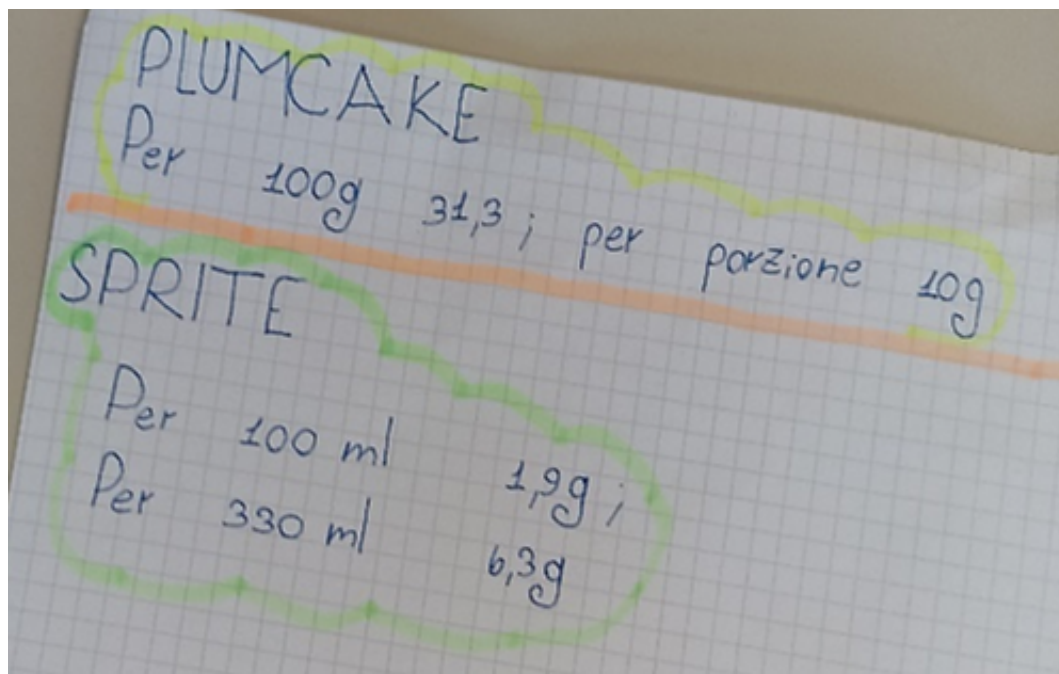 PLUMCAKE
Per 100g 31,3; per porzione 10g
SPRITE
Per 100 ml 1,9g;
Per 330 ml 6,3g